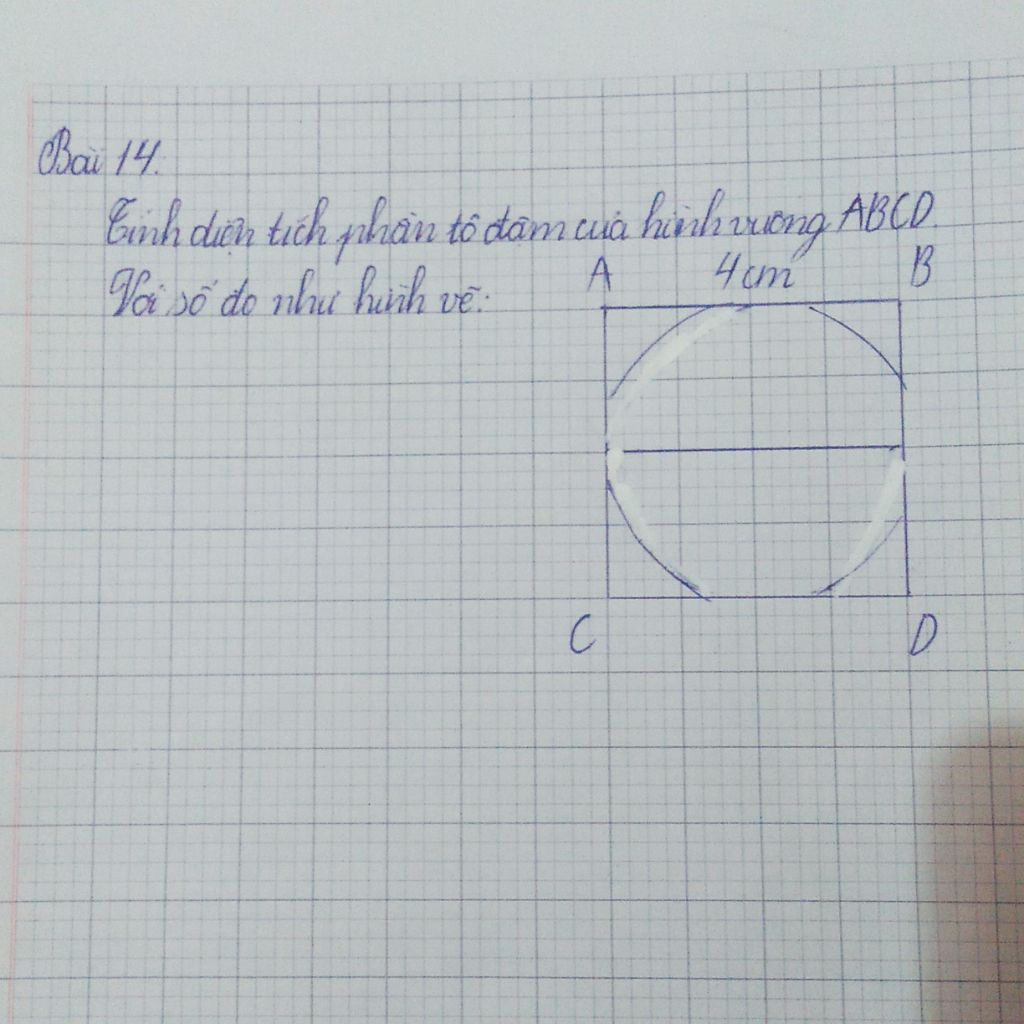 Bài 14.
Tính diện tích phần tô đậm của hình vuông ABCD.
Với số đo như hình vẽ:
A 4cm B
C D